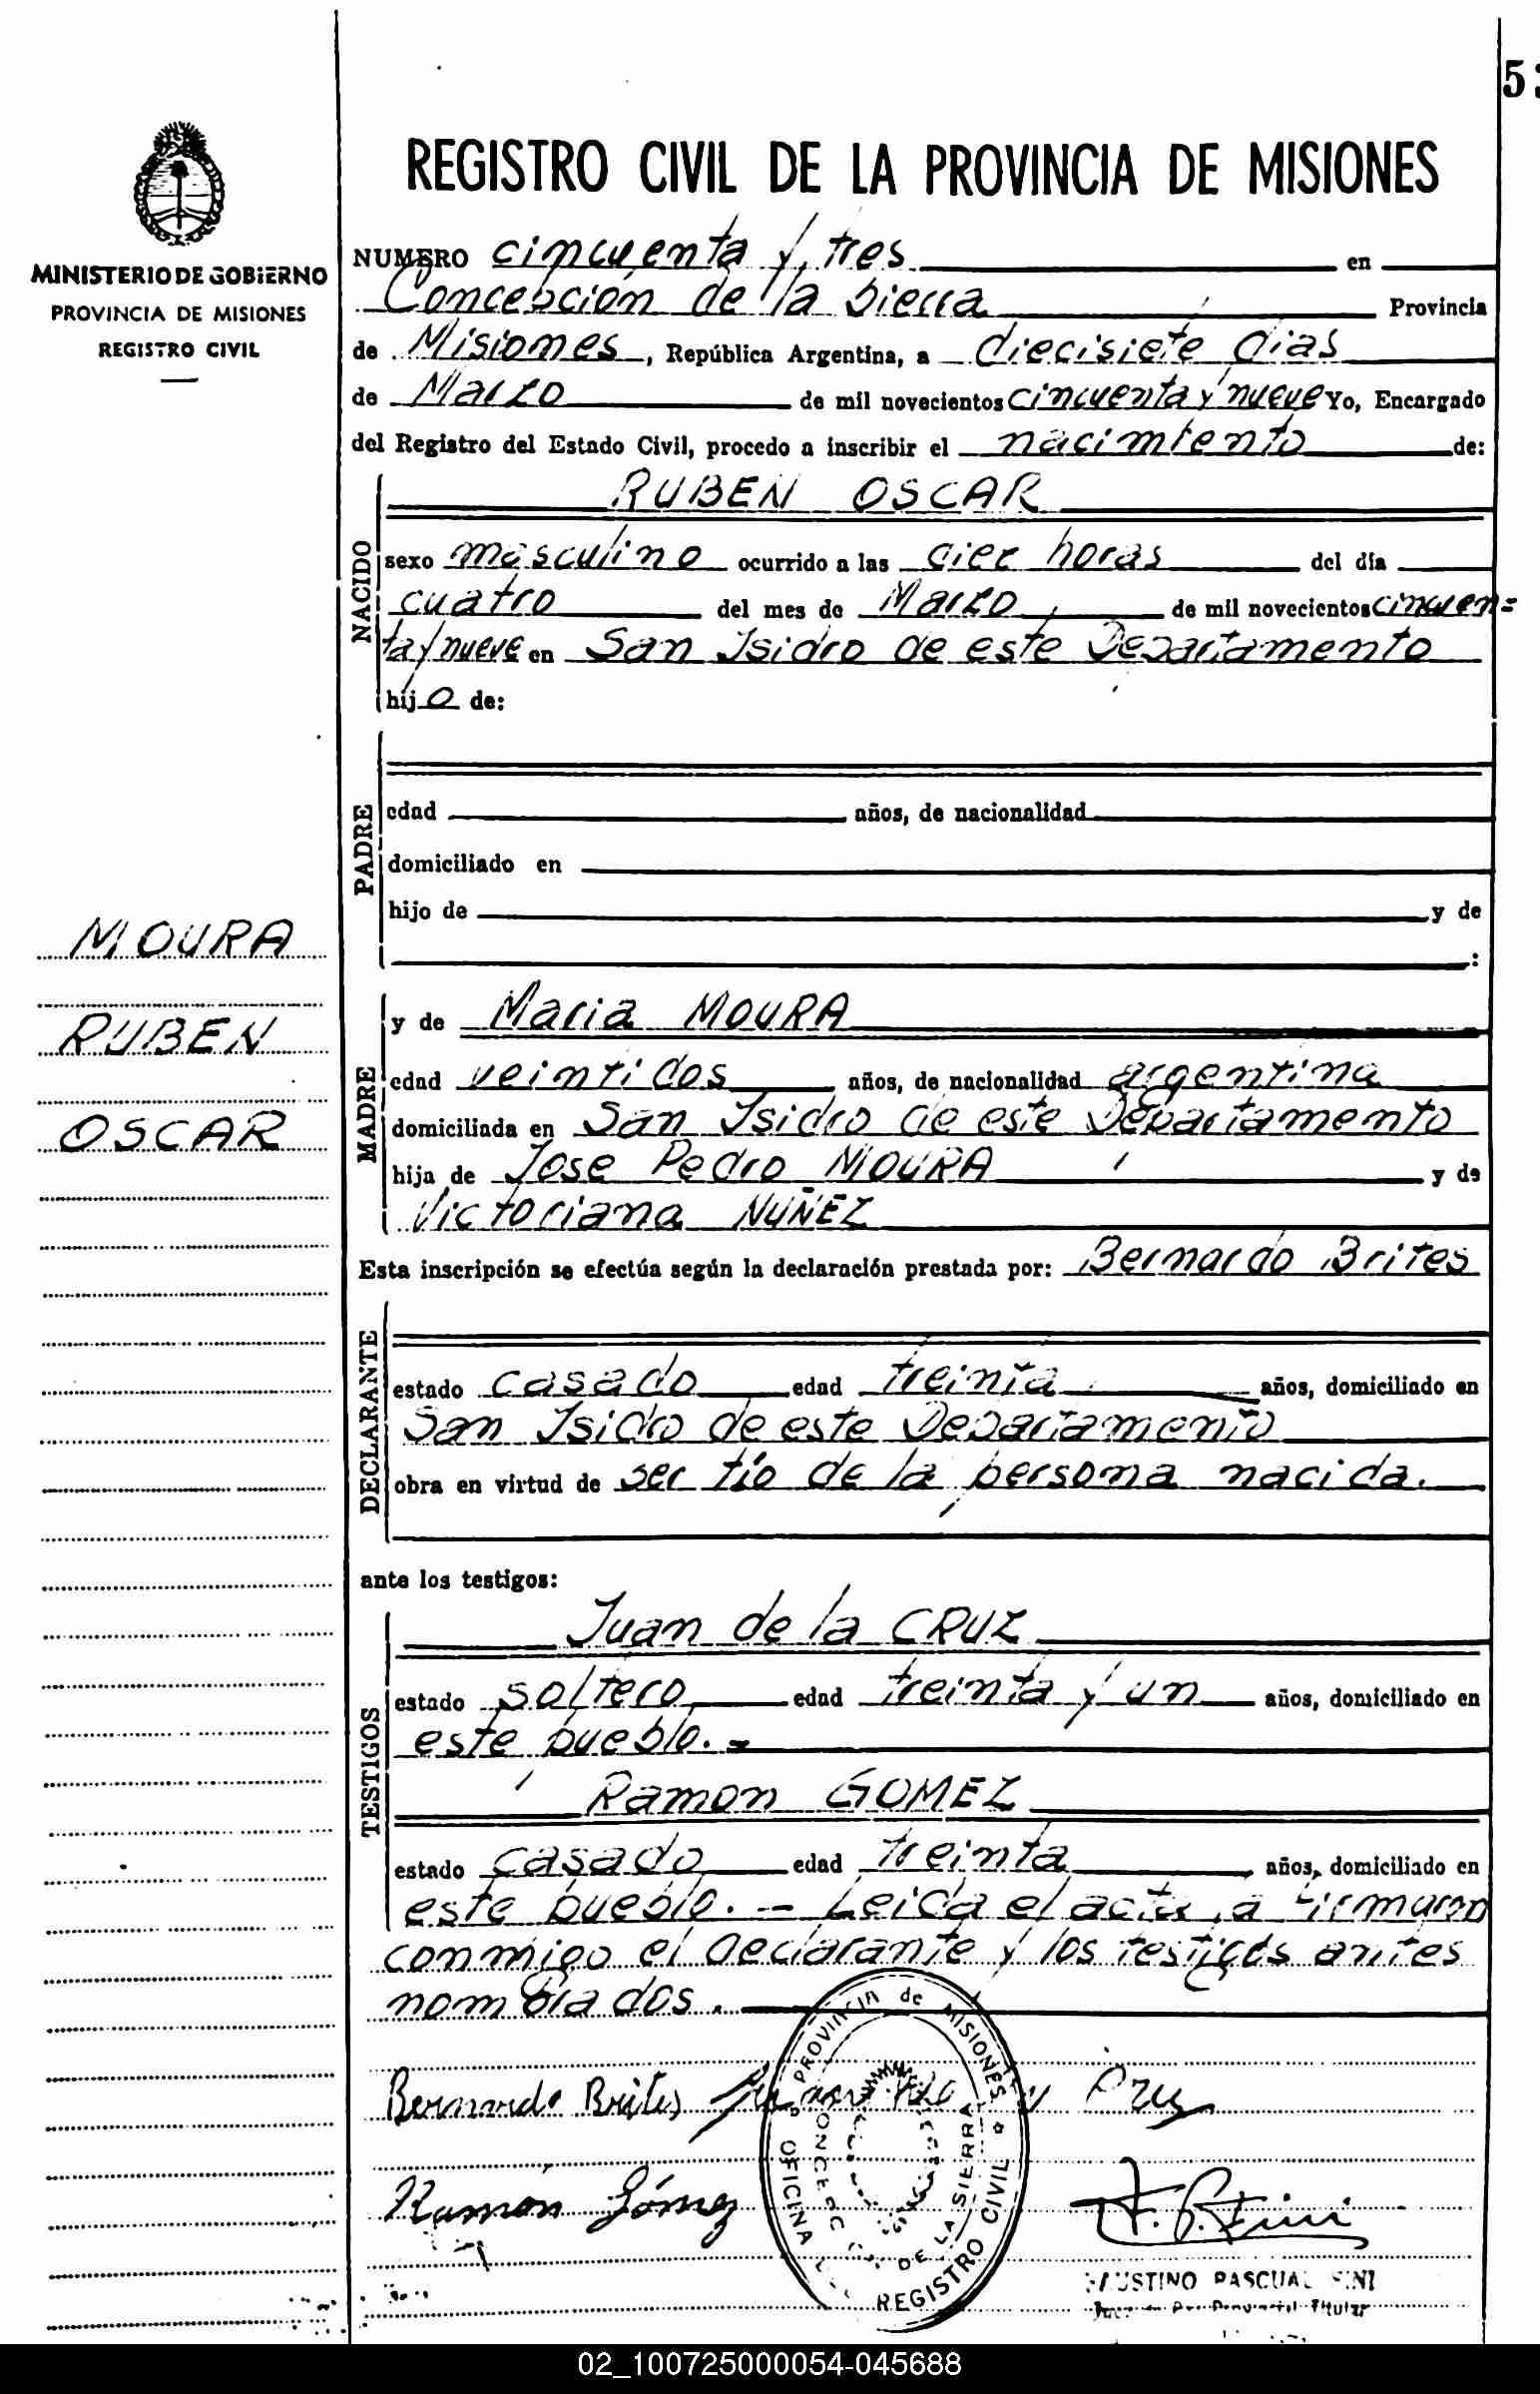 53
REGISTRO CIVIL DE LA PROVINCIA DE MISIONES
MINISTERIO DE GOBIERNO
PROVINCIA DE MISIONES
REGISTRO CIVIL
NUMERO cincuenta y tres en
Concepción de la Sierra Provincia
de Misiones, República Argentina, a diecisiete dias
de Marzo de mil novecientos cincuenta y nueve Yo, Encargado
del Registro del Estado Civil, procedo a inscribir el nacimiento de:
NACIDO
RUBEN OSCAR
sexo masculino ocurrido a las diez horas del día
cuatro del mes de Marzo de mil novecientos cincuen=
ta y nueve en San Isidro de este Departamento
hijo de:
PADRE
edad años, de nacionalidad
domiciliado en
hijo de y de
:
MOURA
RUBEN
OSCAR
MADRE
y de Maria MOURA
edad veintidos años, de nacionalidad argentina
domiciliada en San Isidro de este Departamento
hija de Jose Pedro MOURA y de
Victoriana NUÑEZ
Esta inscripción se efectúa según la declaración prestada por: Bernardo Brites
DECLARANTE
estado casado edad treinta años, domiciliado en
San Isidro de este Departamento
obra en virtud de ser tío de la persona nacida.
ante los testigos:
TESTIGOS
Juan de la CRUZ
estado soltero edad treinta y un años, domiciliado en
este pueblo.-
Ramon GOMEZ
estado casado edad treinta años, domiciliado en
este pueblo. - Leida el acta, la firmaron
conmigo el declarante y los testigos antes
nombrados.
Bernardo Brites Juan de la Cruz
Ramón Gómez F. P. Fini
PROVINCIA de MISIONES
OFICINA REGISTRO CIVIL
CONCEPC DE LA SIERRA
FAUSTINO PASCUAL FINI
Juez de Paz Titular
02_100725000054-045688